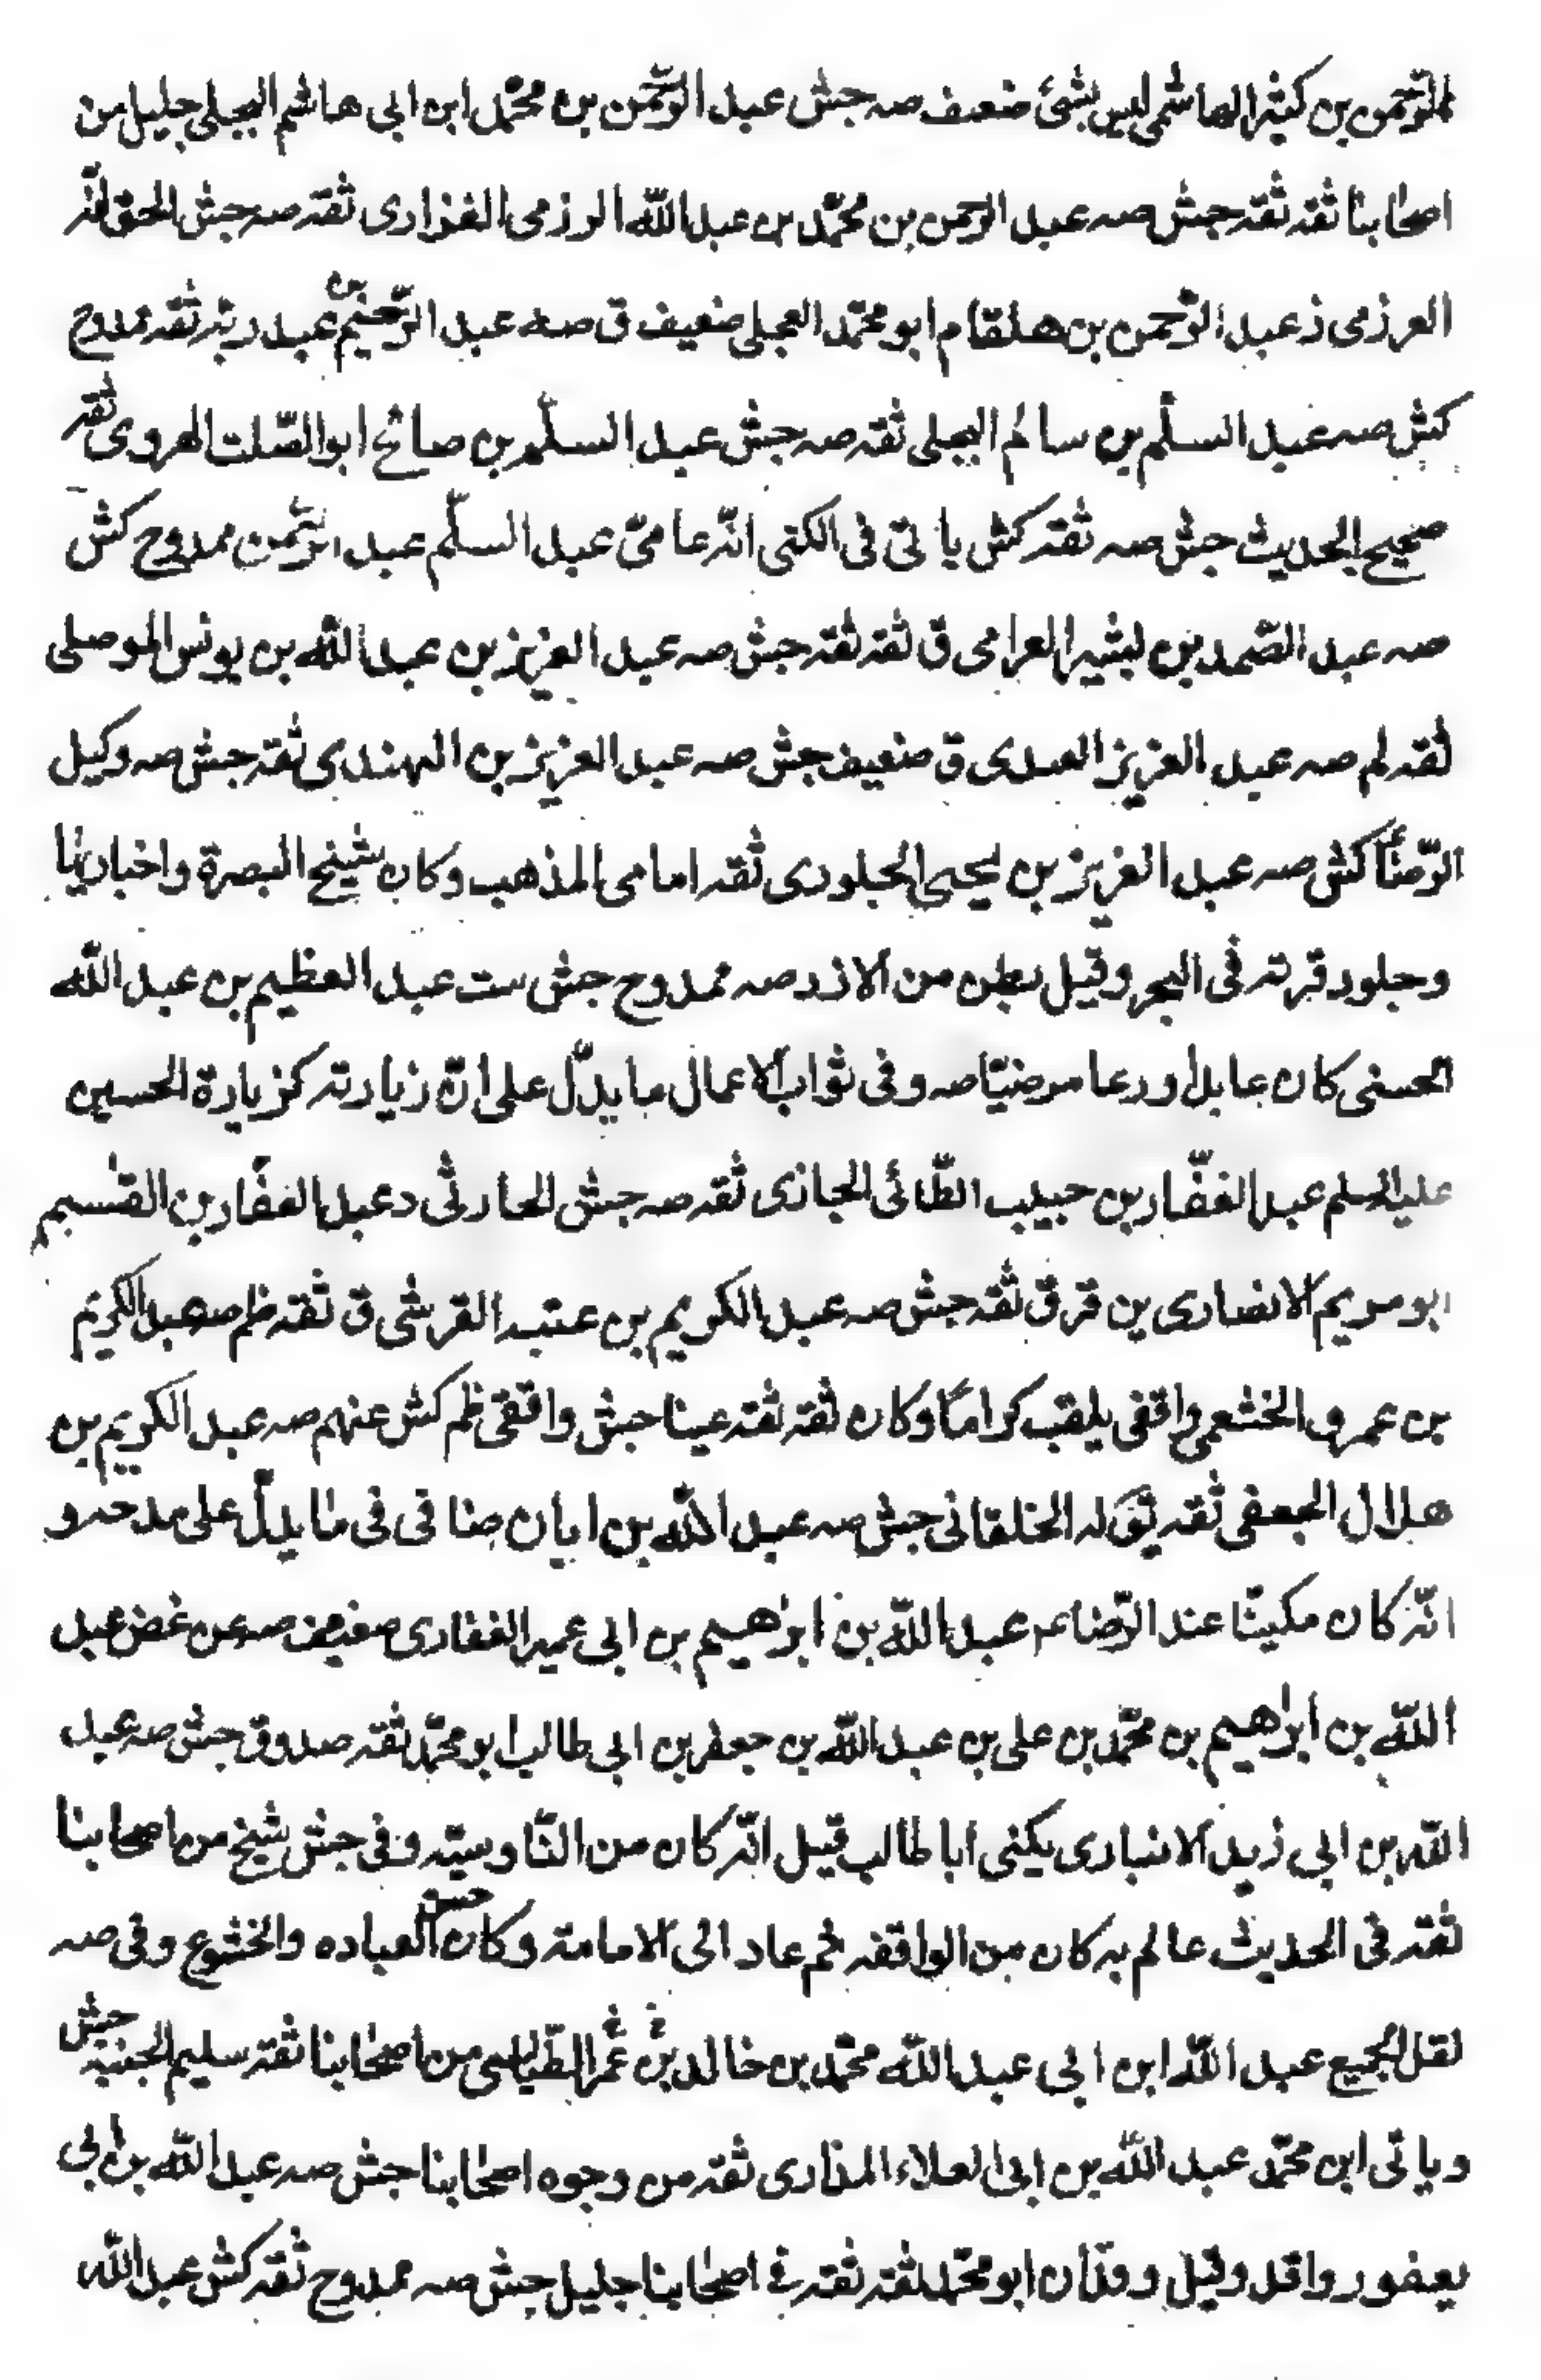 الرّحمن بن كثير الهاشمي ليس بشئ ضعيف صه جش عبد الرّحمن بن محمّد ابن ابي هاشم البجلي جليل من
اصحابنا ثقه ثقه جش صه عبد الرحمن بن محمّد بن عبد اللّه الرزمى الفزارى ثقه صه جش الحق انّه
العرزمى ذ عبد الرّحمن بن هلقام ابو محمّد العجلي ضعيف ق صه عبد الرّحيم بن عبد ربه ثقه ممدوح
كش صه عبد السلّم بن سالم البجلي ثقه صه جش عبد السلّم بن صالح ابو الصّلت الهروى ثقه
صحيح الحديث جش صه ثقه كش يأتى فى الكنى انّه عامىّ عبد السلّم عبد الرّحمن ممدوح كش
صه عبد الصّمد بن بشير العرامى ق ثقه ثقه جش صه عبد العزيز بن عبد اللّه بن يونس الموصلى
ثقه لم صه عبد العزيز العبدى ق ضعيف جش صه عبد العزيز بن المهتدى ثقه جش صه وكيل
الرّضا كش صه عبد العزيز بن يحيى الجلودى ثقه امامى المذهب وكان شيخ البصرة واخباريّا
وجلود قريته فى البحر وقيل بطن من الازد صه ممدوح جش ست عبد العظيم بن عبد اللّه
الحسنى كان عابدا ورعا مرضيّا صه وفى ثواب الاعمال ما يدلّ على انّ زيارته كزيارة الحسين
عليه السلم عبد الغفّار بن حبيب الطّائى الجازى ثقه صه جش الحارثى د عبد الغفّار بن القسم
ابو مريم الانصارى ين قر ق ثقه جش صه عبد الكريم بن عتبه القرشى ق ثقه ظم صه عبد الكريم
بن عمرو الخثعمى واقفى يلقب كرامًا وكان ثقه ثقه عينا جش واقفى ظم كش عنهم صه عبد الكريم بن
هلال الجعفى ثقه يق له الخلقانى جش صه عبد اللّه بن ابان ضا فى فى ما يدلّ على مدحه و
انّه كان مكينًا عند الرّضا عبد اللّه بن ابرهيم بن ابى عمير الغفارى ضعيف صه عن غض عبد
اللّه بن ابرهيم بن محمّد بن على بن عبد اللّه بن جعفر بن ابى طالب ابو محمّد ثقه صدوق جش صه عبد
اللّه بن ابى زيد الانبارى يكنى ابا طالب قيل انّه كان من النّاوسيّه وفى جش شيخ من اصحابنا
ثقه فى الحديث عالم به كان من الواقفه ثم عاد الى الامامة وكان حسن العباده والخشوع وفى صه
نقل الجميع عبد اللّه ابن ابى عبد اللّه محمّد بن خالد بن عمر الطّيالسى من اصحابنا ثقه سليم الجنبة جش
وياتى ابن محمّد عبد اللّه بن ابى العلاء المذارى ثقه من وجوه اصحابنا جش صه عبد اللّه بن ابى
يعفور واقد وقيل وقدان ابو محمّد ثقه ثقه فى اصحابنا جليل جش صه ممدوح ثقه كش عبد اللّه